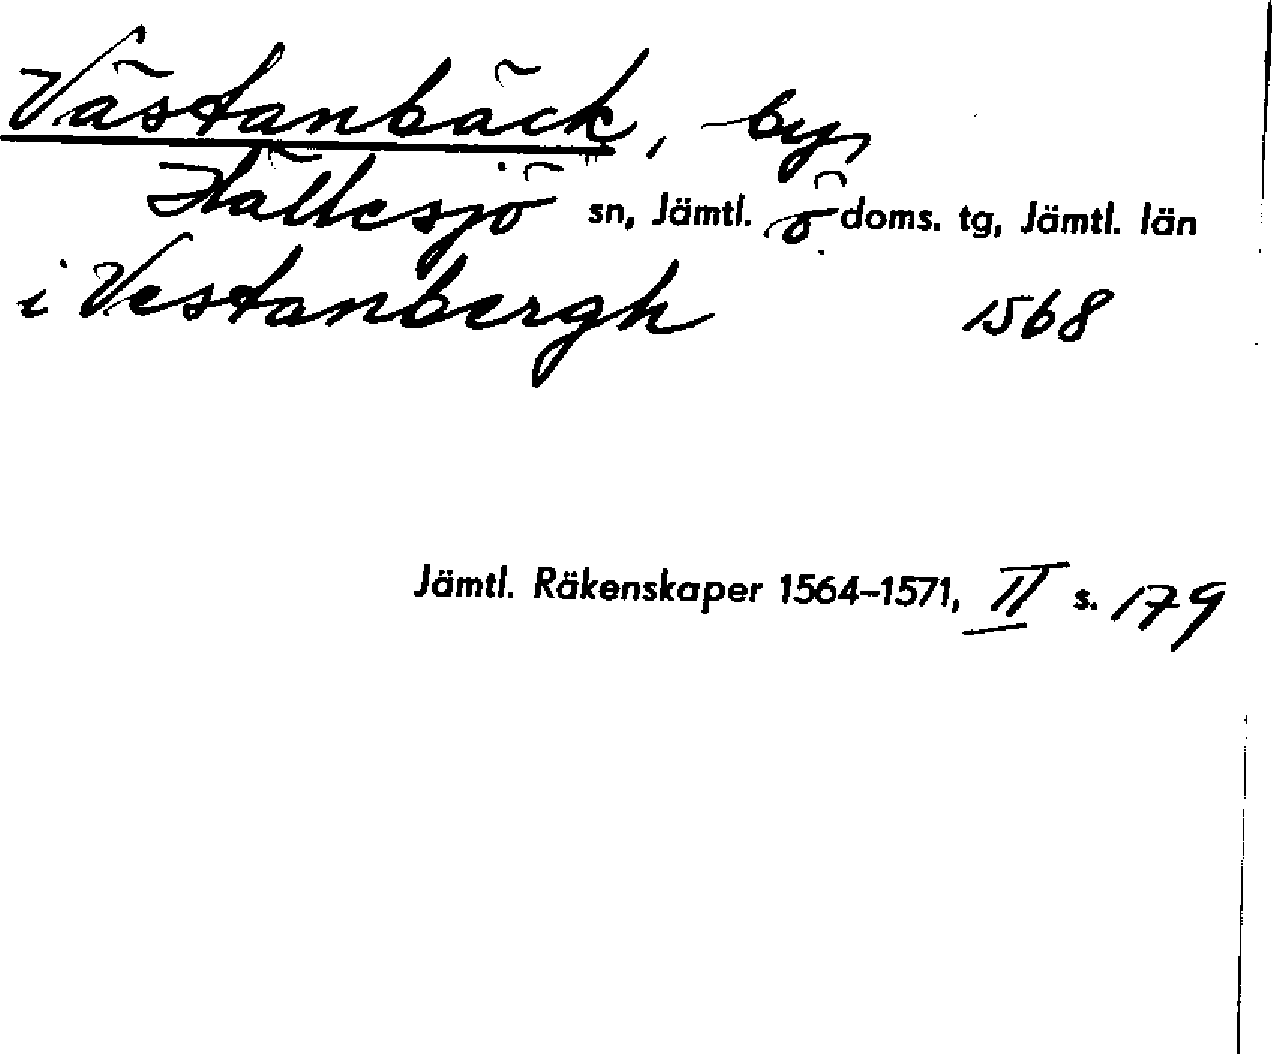 Västanbäck, by,
Hällesjö sn, Jämtl. ö doms. tg, Jämtl. län
i Vestanbergh 1568
Jämtl. Räkenskaper 1564–1571, II s. 179